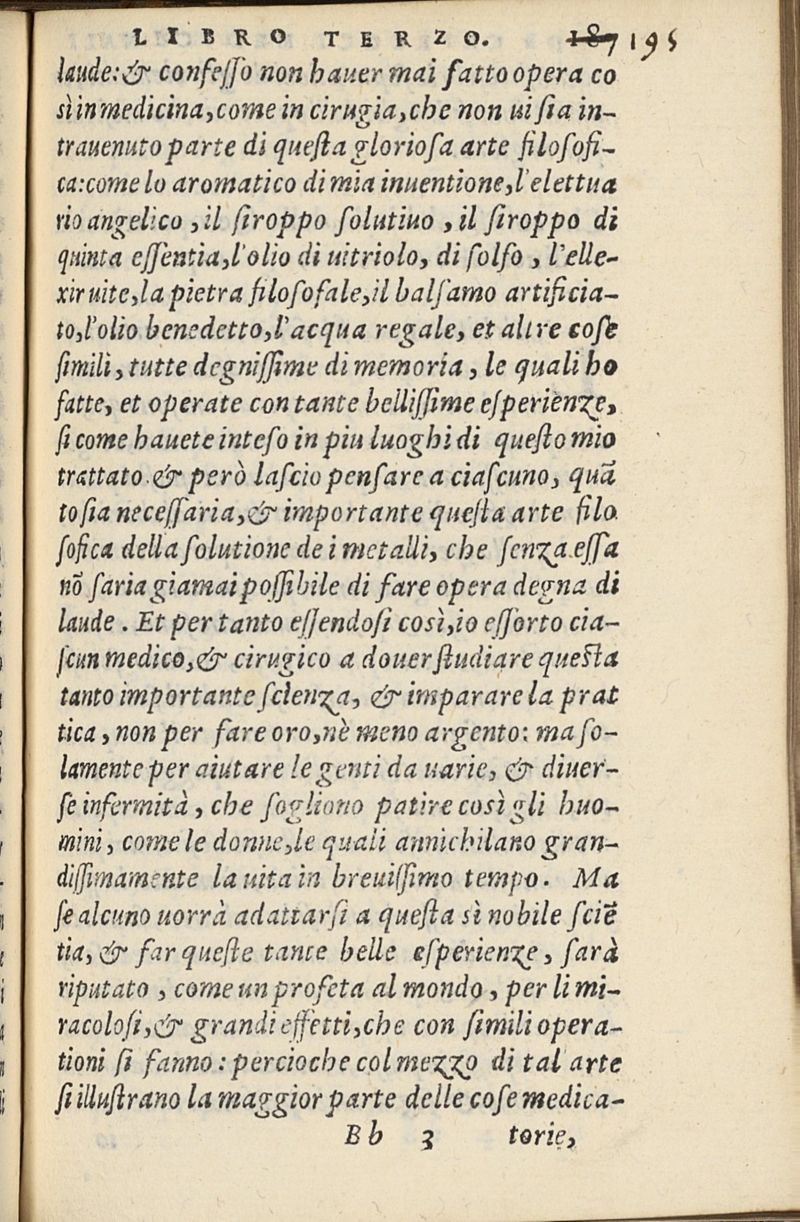 LIBRO TERZO. 187 195
laude:& confesso non hauer mai fatto opera co
sì in medicina, come in cirugia, che non ui sia in-
trauenuto parte di questa gloriosa arte filosofi-
ca: come lo aromatico di mia inuentione, l'elettua
rio angelico, il siroppo solutiuo, il siroppo di
quinta essentia, l'olio di uitriolo, di solfo, l'elle-
xir uite, la pietra filosofale, il balsamo artificia-
to, l'olio benedetto, l'acqua regale, et altre cose
simili, tutte degnissime di memoria, le quali ho
fatte, et operate con tante bellissime esperienze,
si come hauete inteso in piu luoghi di questo mio
trattato. & però lascio pensare a ciascuno, quã
to sia necessaria, & importante questa arte filo
sofica della solutione de i metalli, che senza essa
nõ saria giamai possibile di fare opera degna di
laude. Et per tanto essendosi così, io essorto cia-
scun medico, & cirugico a douer studiare questa
tanto importante scienza, & imparare la prat
tica, non per fare oro, nè meno argento: ma so-
lamente per aiutare le genti da uarie, & diuer-
se infermità, che sogliono patire così gli huo-
mini, come le donne, le quali annichilano gran-
dissimamente la uita in breuissimo tempo. Ma
se alcuno uorrà adattarsi a questa sì nobile sciẽ
tia, & far queste tante belle esperienze, sarà
riputato, come un profeta al mondo, per li mi-
racolosi, & grandi effetti, che con simili opera-
tioni si fanno: percioche col mezzo di tal arte
si illustrano la maggior parte delle cose medica-
Bb 3 torie,